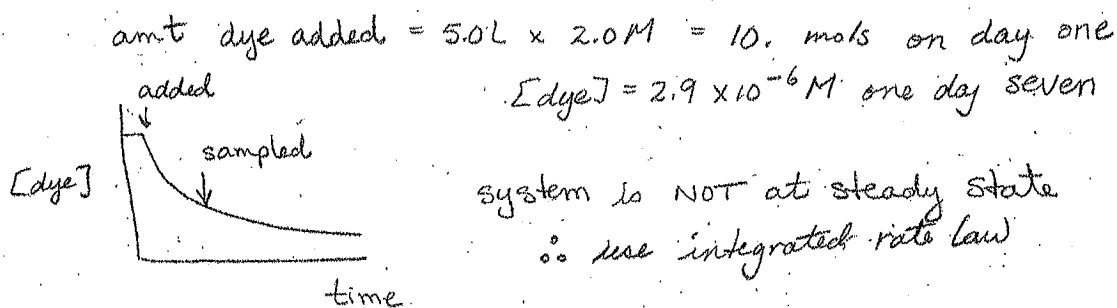 amt dye added = 5.0L x 2.0M = 10. mols on day one
[dye] = 2.9 x10⁻⁶ M one day seven
added
sampled
[dye]
system is NOT at steady state
∴ use integrated rate law
time